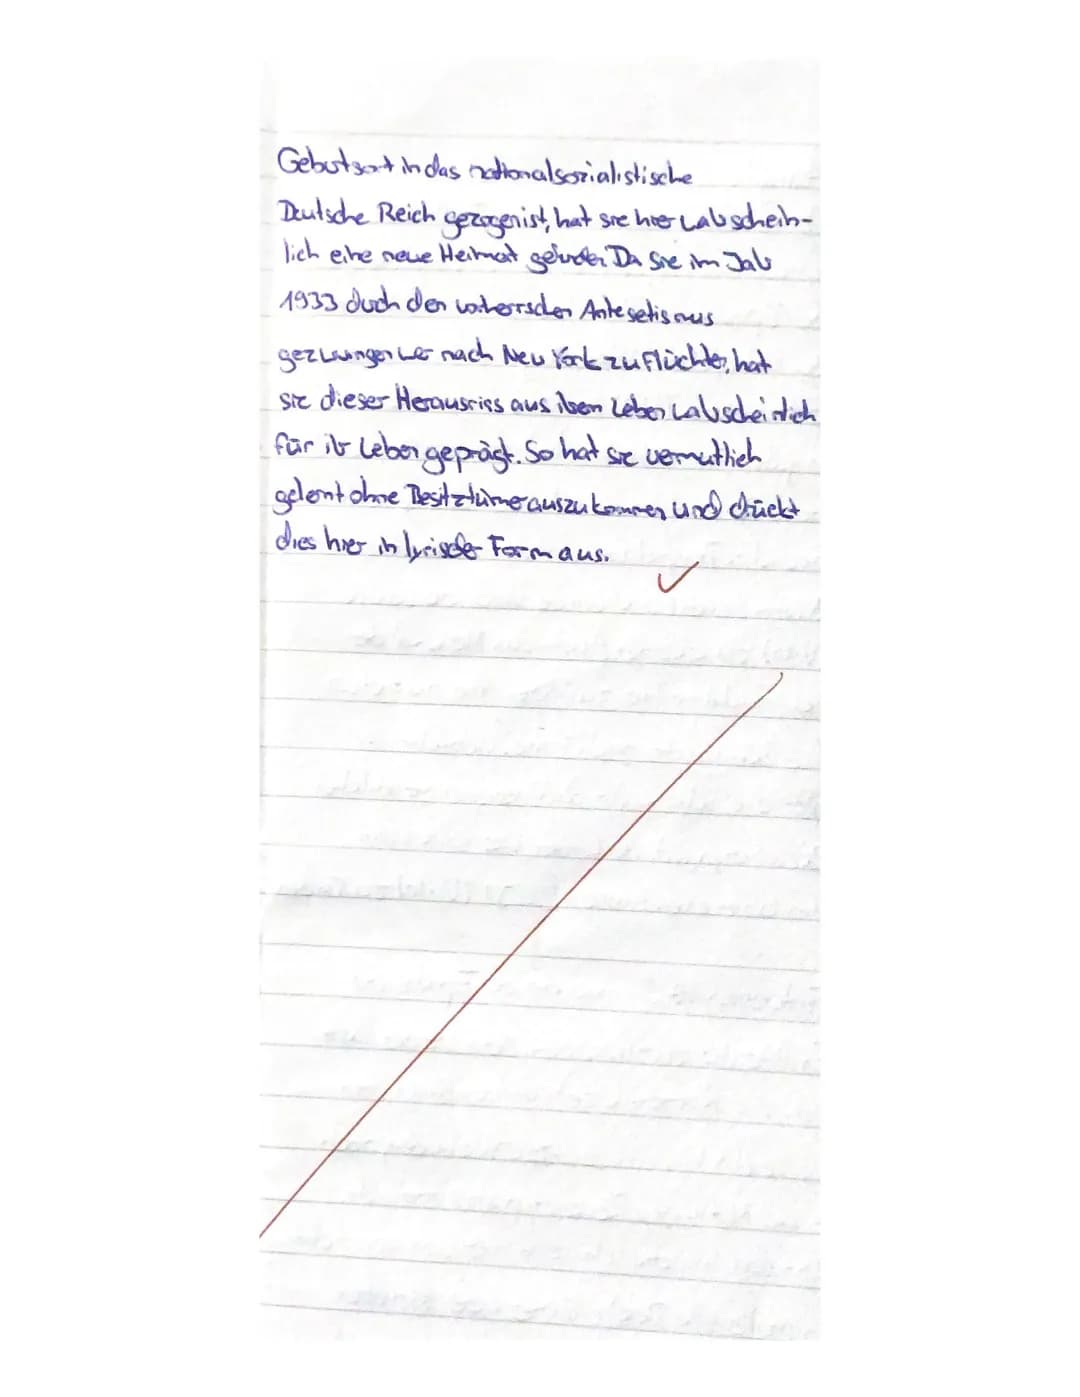 Gebutsort in das nationalsozialistische
Deutsche Reich gezogen ist, hat sie hier wahschein-
lich eine neue Heimat gefunden. Da sie im Jah
1933 duch den vorherrschen Antesetismus
gezwungen wer nach New York zu flüchten, hat
sie dieser Herausriss aus ihem Leben wahscheinlich
für ih Leben geprägt. So hat sie vermutlich
gelernt ohne Besitztümer auszukommen und drückt
dies hier in lyrischer Form aus.